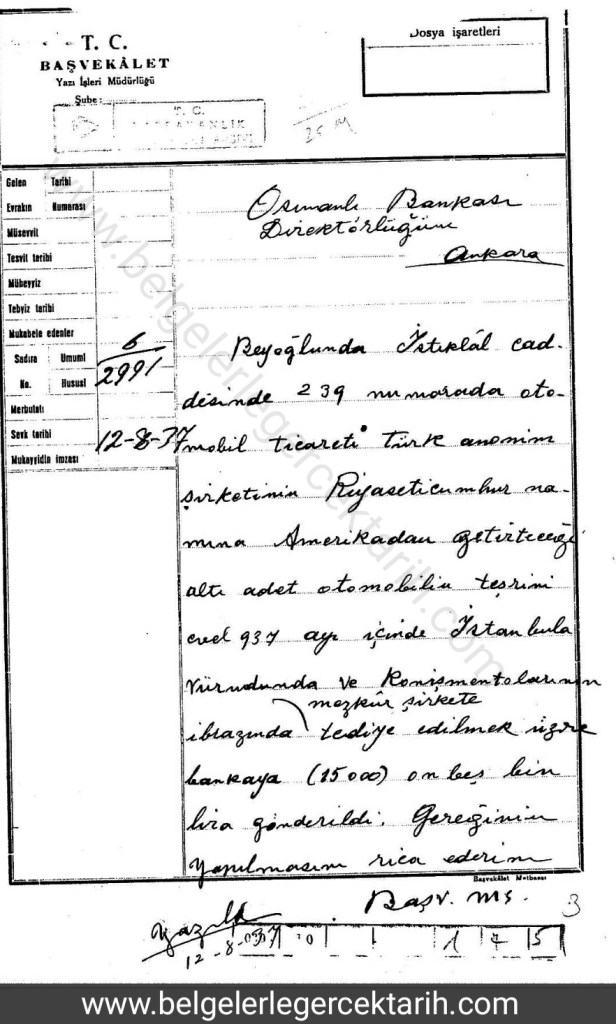 T. C.
BAŞVEKÂLET
Yazı İşleri Müdürlüğü
Şube:
T. C.
Dosya işaretleri
Gelen Tarihi
Evrakın Numarası
Müsevvit
Tesvit tarihi
Mübeyyiz
Tebyiz tarihi
Mukabele edenler
Sadıra Umumî
No. Hususî
6
2991
Merbutatı
Sevk tarihi
12-8-37
Mukayyidin imzası
Osmanlı Bankası
Direktörlüğüne
Ankara
Beyoğlunda İstiklâl cad-
desinde 239 numarada oto-
mobil ticareti Türk anonim
şirketinin Riyaseticumhur na-
mına Amerikadan getirteceği
altı adet otomobilin teşrini
evel 937 ayı içinde İstanbula
vürudunda ve konişmentolarının
mezkûr şirkete
ibrazında tediye edilmek üzre
bankaya (15000) on beş bin
lira gönderildi. Gereğinin
yapılmasını rica ederim
Başvekâlet Matbaası
Başv. Ms.
3
Yazıldı
12-8-937
1 4 5
www.belgelerlegercektarih.com
www.belgelerlegercektarih.com